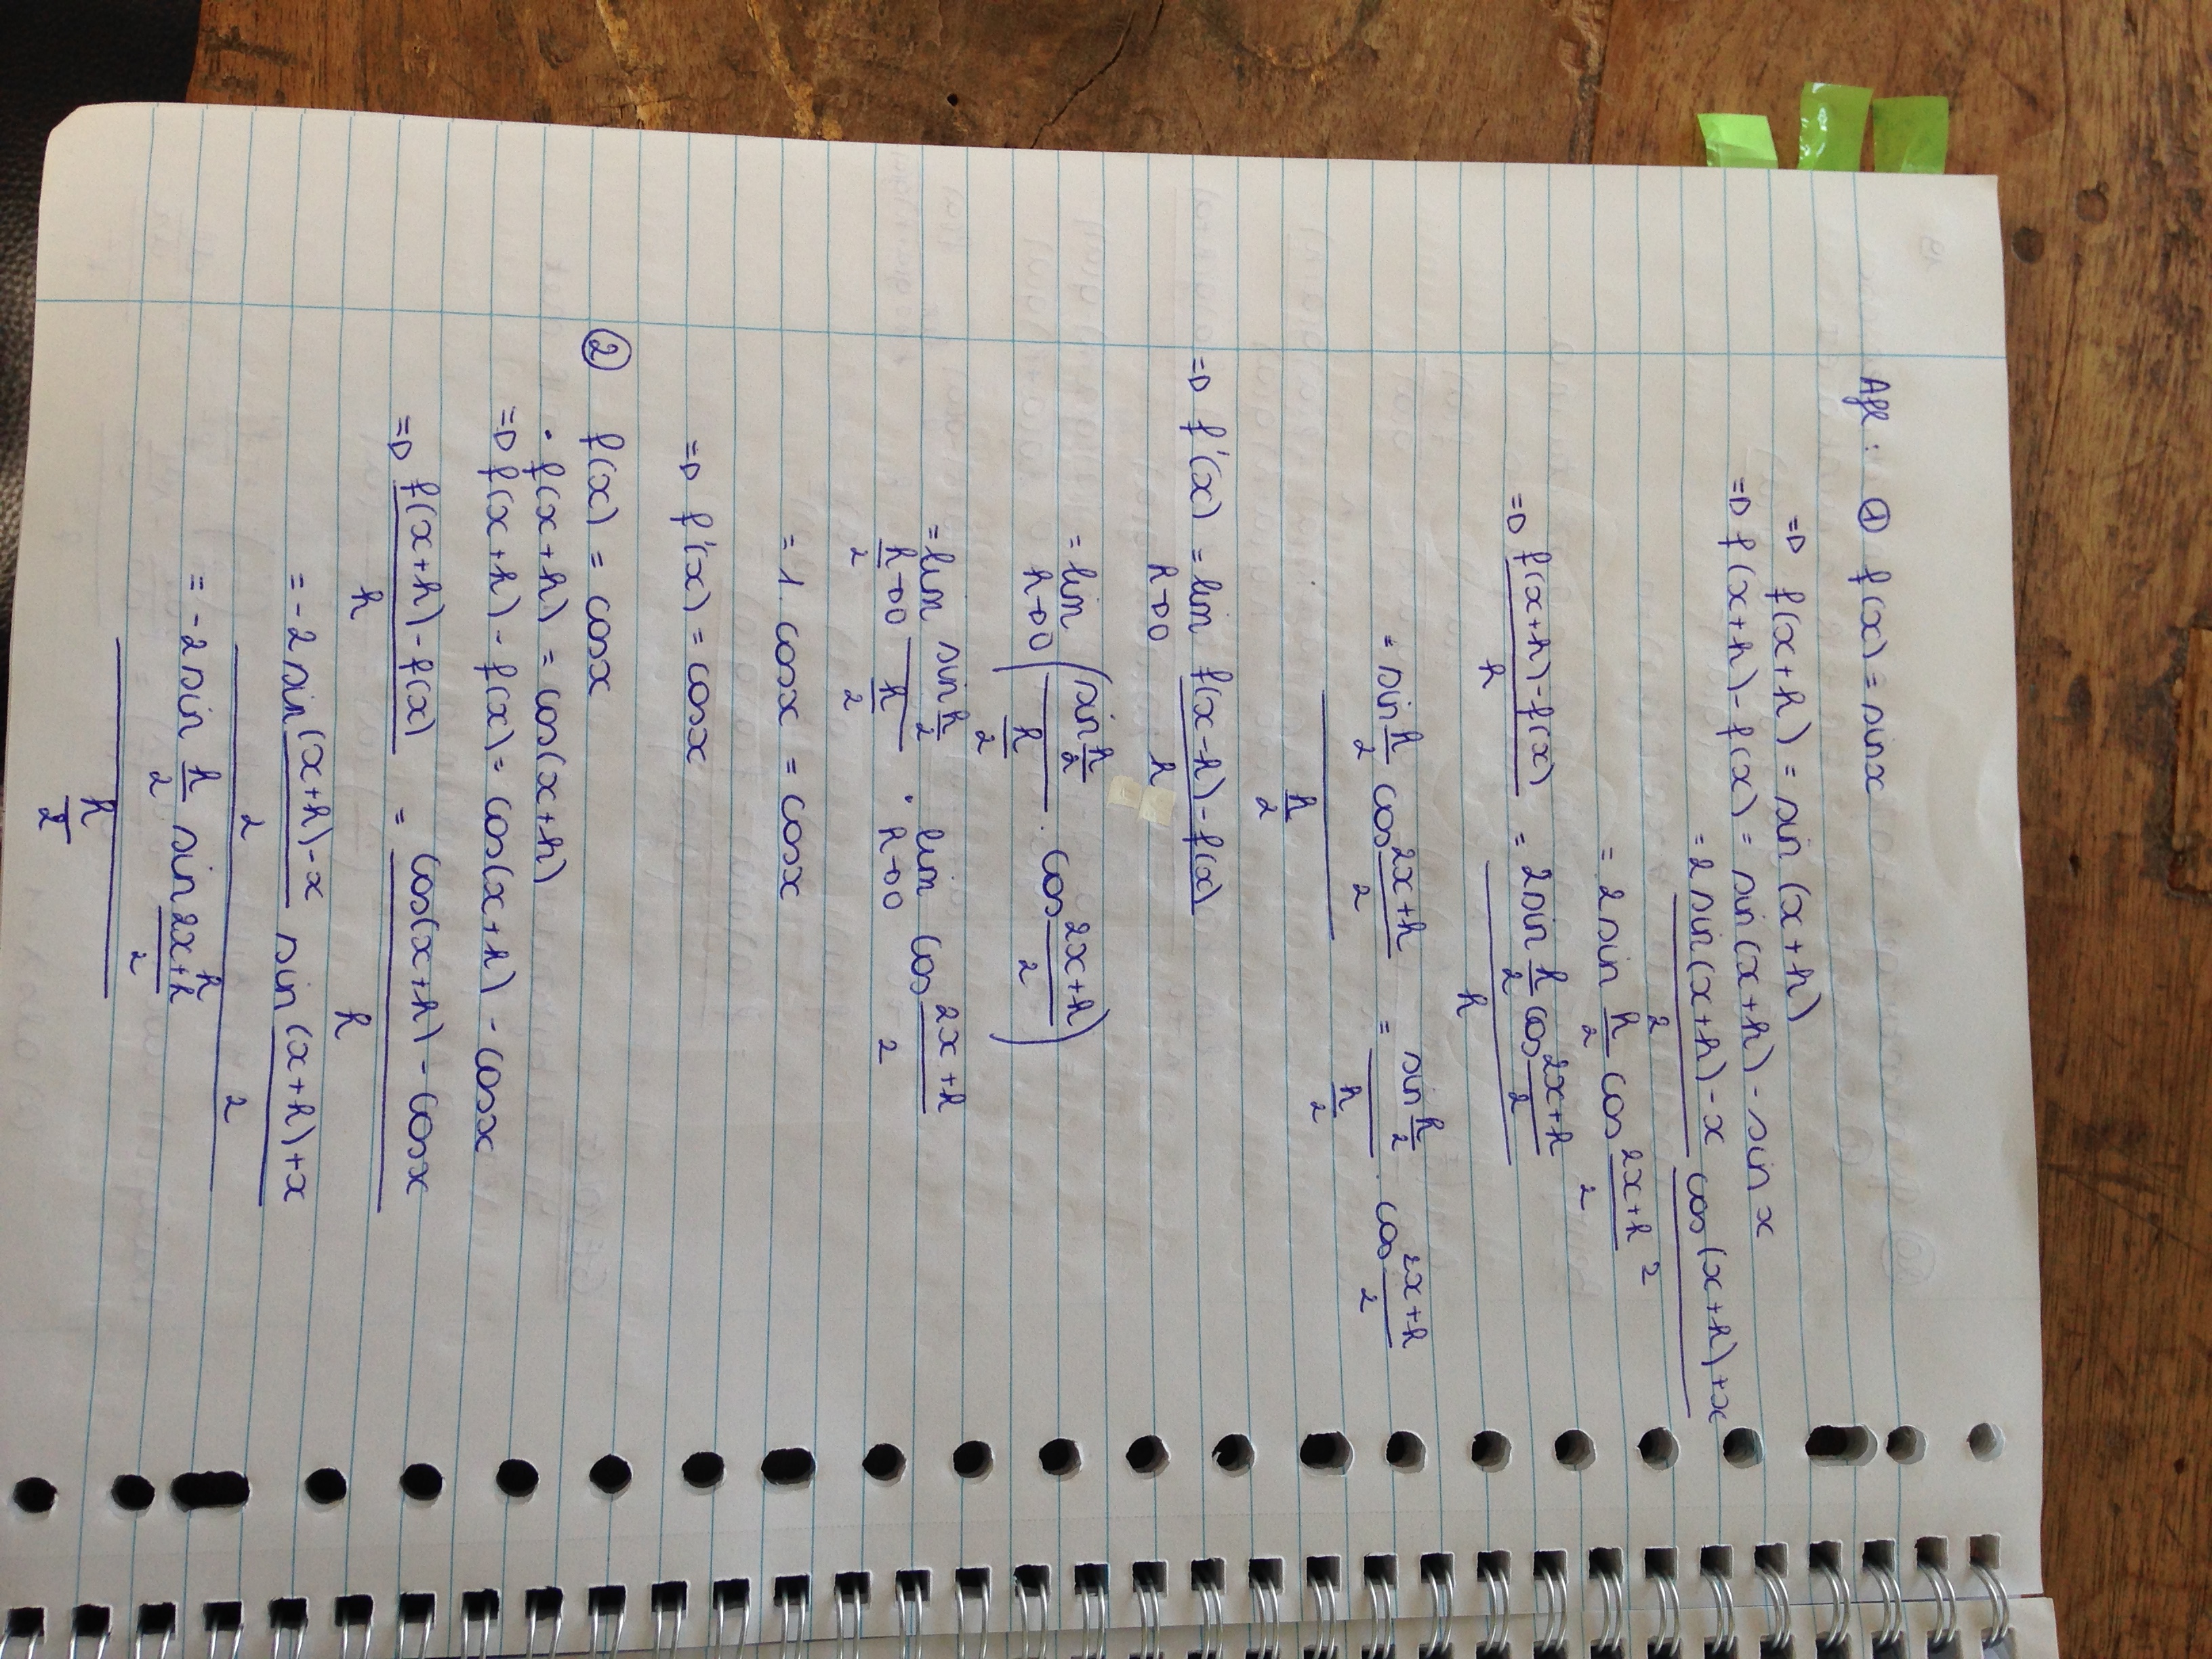 Afl : ① f(x) = sinx
⇒ f(x+h) = sin (x+h)
⇒ f(x+h) - f(x) = sin(x+h) - sin x
= 2 sin (x+h)-x / 2 cos (x+h)+x / 2
= 2 sin h/2 cos 2x+h / 2
⇒ f(x+h)-f(x) / h = 2 sin h/2 cos 2x+h / 2 / h
= sin h/2 cos 2x+h / 2 / h/2 = sin h/2 / h/2 . cos 2x+h / 2
⇒ f'(x) = lim h→0 f(x-h)-f(x) / h
= lim h→0 (sin h/2 / h/2 . cos 2x+h / 2)
= lim h/2→0 sin h/2 / h/2 . lim h→0 cos 2x+h / 2
= 1. cosx = cosx
⇒ f'(x) = cosx
② f(x) = cosx
• f(x+h) = cos(x+h)
⇒ f(x+h) - f(x) = cos(x+h) - cosx
⇒ f(x+h)-f(x) / h = cos(x+h) - cosx / h
= -2 sin (x+h)-x / 2 sin (x+h)+x / 2 / h
= -2 sin h/2 sin 2x+h / 2 / h/2